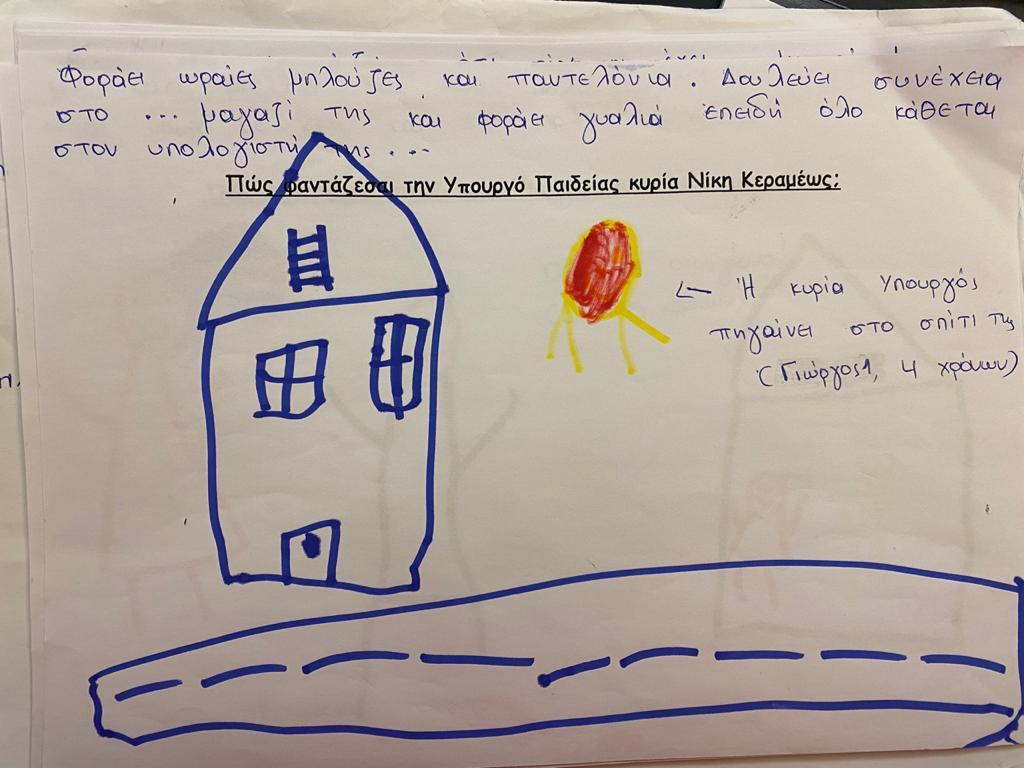 Φοράει ωραίες μπλούζες και παντελόνια. Δουλεύει συνέχεια
στο ... μαγαζί της και φοράει γυαλιά επειδή όλο κάθεται
στον υπολογιστή της...
Πώς φαντάζεσαι την Υπουργό Παιδείας κυρία Νίκη Κεραμέως;
← Η κυρία Υπουργός
πηγαίνει στο σπίτι της
(Γιώργος1, 4 χρόνων)